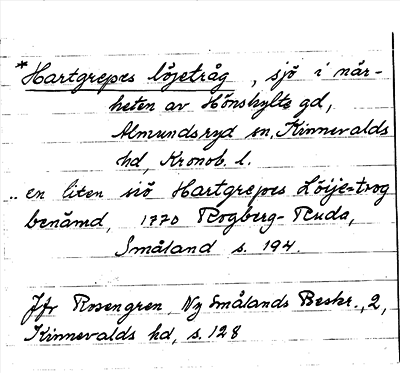 *Hartgrepes löjetråg, sjö i när-
heten av Hönshylte gd,
Almundsryd sn, Kinnevalds
hd, Kronob. l.
.. en liten siö Hartgrepes Löije=trog
benämd, 1770 Rogberg-Ruda,
Småland s. 194.
Jfr Rosengren, Ny Smålands Beskr., 2,
Kinnevalds hd, s. 128